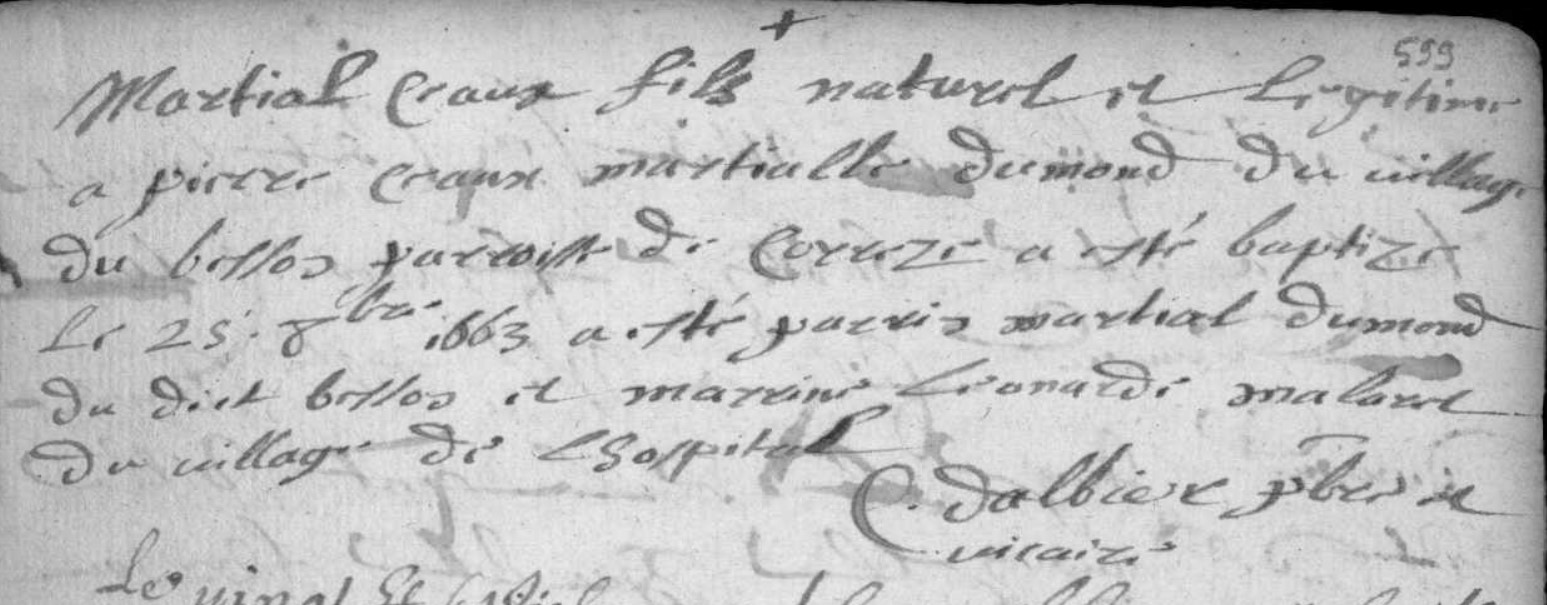 599
Martial Ceaux fils naturel et legitime
a pierre Ceaux martialle dumond du village
du bessos parroisse de Correze a esté baptize
le 25. 8bre 1663 a esté parrin martial dumond
du dict bessos et marrine leonarde malarel
du village de lhospital
C. dalbier pbre et
vicaire
Le vingt et